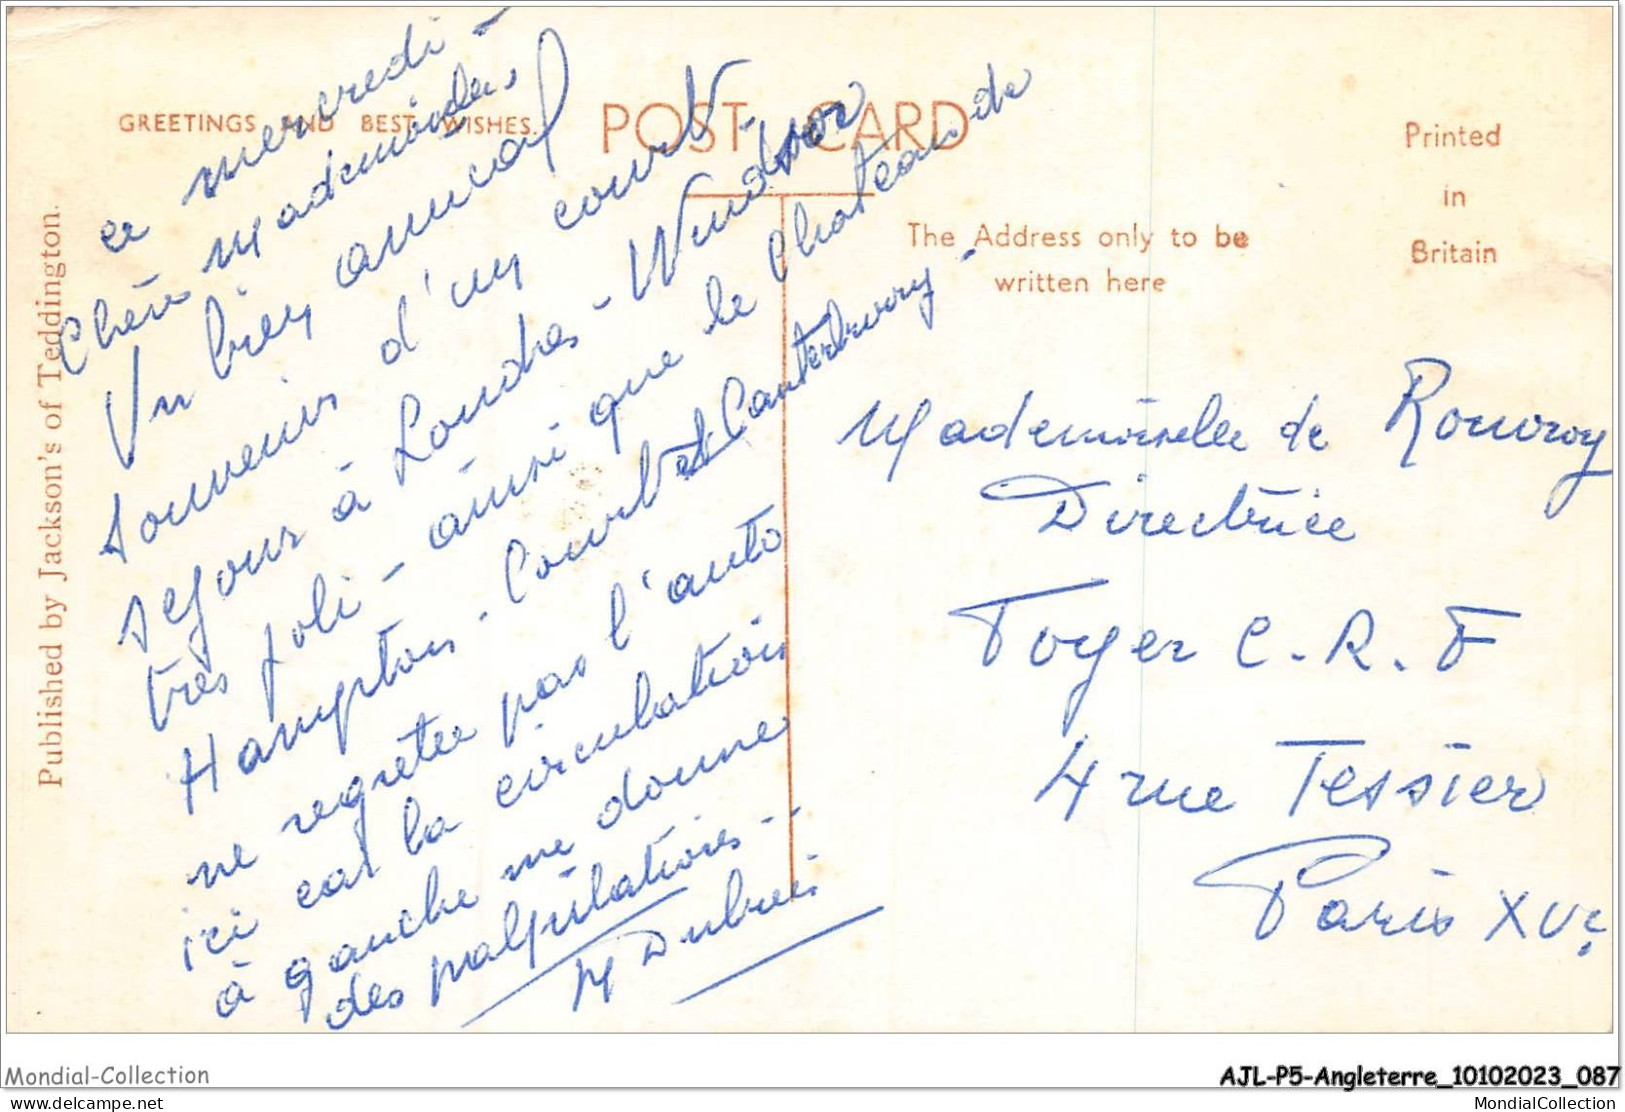 GREETINGS AND BEST WISHES.
POST CARD
Printed
in
Britain
The Address only to be
written here
Published by Jackson's of Teddington.
ce mercredi -
Chère Mademoiselle,
Un bien amical
souvenir d'un court
séjour à Londres - Windsor
très joli - ainsi que le Chateau de
Hampton. Court et Canterbury -
ne regrette pas l'auto
ici car la circulation
à gauche me donne
des palpitations --
M
Mademoiselle de Rouvroy
Directrice
Foyer C.R.F
4 rue Tessier
Paris XVe
Mondial-Collection
AJL-P5-Angleterre_10102023_087
delcampe.net
MondialCollection